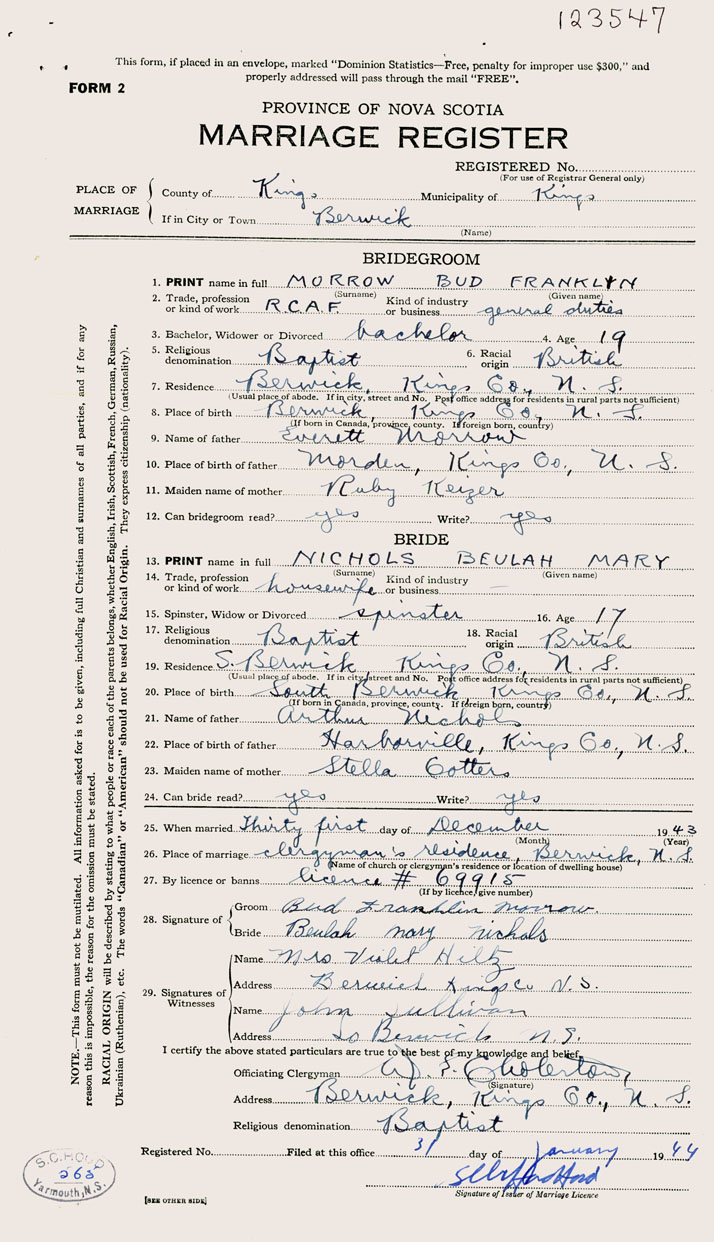 123547
This form, if placed in an envelope, marked "Dominion Statistics—Free, penalty for improper use $300," and
properly addressed will pass through the mail "FREE".
FORM 2
PROVINCE OF NOVA SCOTIA
MARRIAGE REGISTER
REGISTERED No.
(For use of Registrar General only)
PLACE OF MARRIAGE
County of Kings Municipality of Kings
If in City or Town Berwick
(Name)
BRIDEGROOM
1. PRINT name in full MORROW BUD FRANKLYN
(Surname) (Given name)
2. Trade, profession or kind of work R.C.A.F. Kind of industry or business general duties
3. Bachelor, Widower or Divorced bachelor 4. Age 19
5. Religious denomination Baptist 6. Racial origin British
7. Residence Berwick, Kings Co., N. S.
(Usual place of abode. If in city, street and No. Post office address for residents in rural parts not sufficient)
8. Place of birth Berwick, Kings Co., N. S.
(If born in Canada, province, county. If foreign born, country)
9. Name of father Everett Morrow
10. Place of birth of father Morden, Kings Co., N. S.
11. Maiden name of mother Ruby Keizer
12. Can bridegroom read? yes Write? yes
BRIDE
13. PRINT name in full NICHOLS BEULAH MARY
(Surname) (Given name)
14. Trade, profession or kind of work housewife Kind of industry or business —
15. Spinster, Widow or Divorced spinster 16. Age 17
17. Religious denomination Baptist 18. Racial origin British
19. Residence S. Berwick Kings Co., N. S.
(Usual place of abode. If in city, street and No. Post office address for residents in rural parts not sufficient)
20. Place of birth South Berwick, Kings Co., N. S.
(If born in Canada, province, county. If foreign born, country)
21. Name of father Arthur Nichols
22. Place of birth of father Harborville, Kings Co., N. S.
23. Maiden name of mother Stella Cotters
24. Can bride read? yes Write? yes
25. When married Thirty first day of December 1943
(Month) (Year)
26. Place of marriage clergyman's residence, Berwick, N. S.
(Name of church or clergyman's residence or location of dwelling house)
27. By licence or banns licence # 69915
(If by licence, give number)
28. Signature of
Groom Bud Franklin Morrow.
Bride Beulah mary nichols
29. Signatures of Witnesses
Name Mrs Violet Hiltz
Address Berwick Kings co N.S.
Name John Sullivan
Address So Berwick N.S.
I certify the above stated particulars are true to the best of my knowledge and belief,
Officiating Clergyman
(Signature)
Address Berwick, Kings Co., N. S.
Religious denomination Baptist
Registered No. Filed at this office 31 day of January 1944
Signature of Issuer of Marriage Licence
[SEE OTHER SIDE]
S.C. HOOD
263
Yarmouth, N.S.
NOTE.—This form must not be mutilated. All information asked for is to be given, including full Christian and surnames of all parties, and if for any
reason this is impossible, the reason for the omission must be stated.
RACIAL ORIGIN will be described by stating to what people or race each of the parents belongs, whether English, Irish, Scottish, French, German, Russian,
Ukrainian (Ruthenian), etc. The words "Canadian" or "American" should not be used for Racial Origin. They express citizenship (nationality).